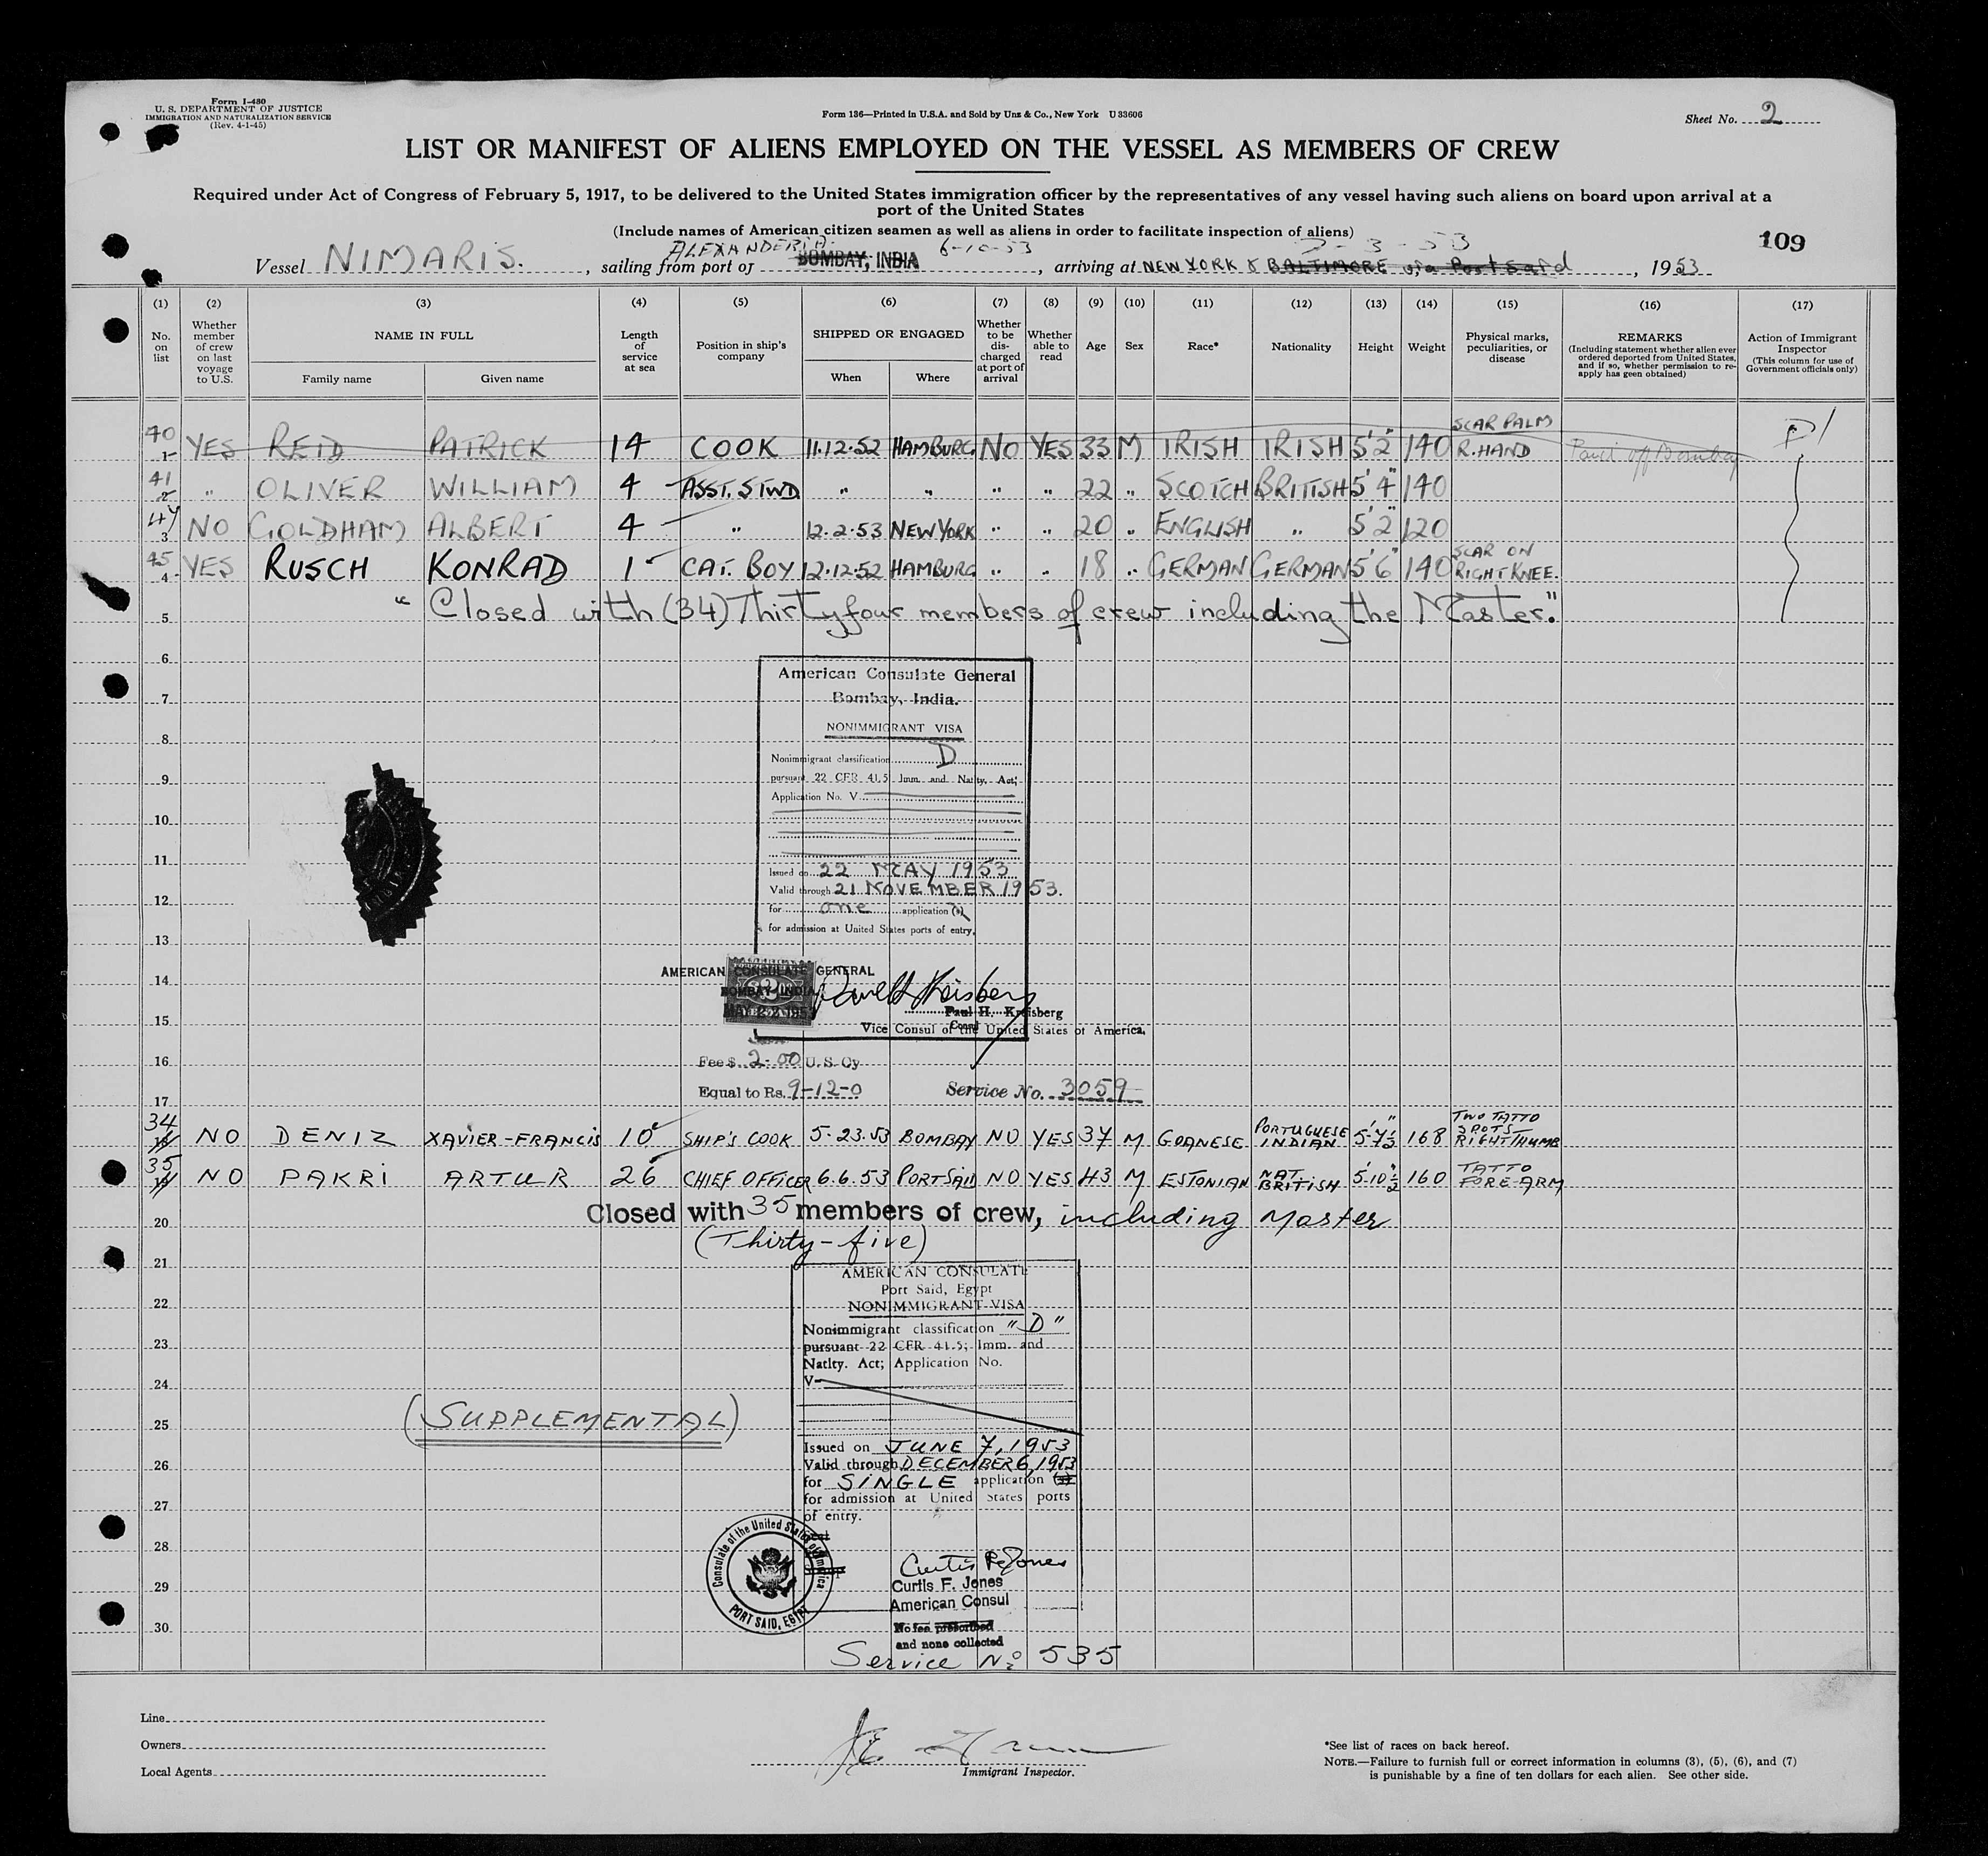 Form I-480
U. S. DEPARTMENT OF JUSTICE
IMMIGRATION AND NATURALIZATION SERVICE
(Rev. 4-1-45)
Form 136—Printed in U.S.A. and Sold by Unz & Co., New York U 33606
Sheet No. 2
LIST OR MANIFEST OF ALIENS EMPLOYED ON THE VESSEL AS MEMBERS OF CREW
Required under Act of Congress of February 5, 1917, to be delivered to the United States immigration officer by the representatives of any vessel having such aliens on board upon arrival at a
port of the United States
(Include names of American citizen seamen as well as aliens in order to facilitate inspection of aliens)
109
ALEXANDERIA. 6-10-53 7-3-53
Vessel NIMARIS. , sailing from port of BOMBAY, INDIA , arriving at NEW YORK & BALTIMORE via Port Said , 1953
(1) (2) (3) (4) (5) (6) (7) (8) (9) (10) (11) (12) (13) (14) (15) (16) (17)
No. on list
Whether member of crew on last voyage to U.S.
NAME IN FULL
Family name
Given name
Length of service at sea
Position in ship's company
SHIPPED OR ENGAGED
When
Where
Whether to be discharged at port of arrival
Whether able to read
Age
Sex
Race*
Nationality
Height
Weight
Physical marks, peculiarities, or disease
REMARKS
(Including statement whether alien ever ordered deported from United States, and if so, whether permission to re-apply has geen obtained)
Action of Immigrant Inspector
(This column for use of Government officials only)
40 1 YES REID PATRICK 14 COOK 11.12.52 HAMBURG. NO YES 33 M IRISH IRISH 5'2" 140 SCAR PALM R. HAND Paid off Bombay
41 2 " OLIVER WILLIAM 4 ASST. STWD " " " " 22 " SCOTCH BRITISH 5'4" 140
44 3 NO GOLDHAM ALBERT 4 " 12.2.53 NEW YORK " " 20 " ENGLISH " 5'2" 120
45 4 YES RUSCH KONRAD 1 CAT. BOY 12.12.52 HAMBURG " " 18 " GERMAN GERMAN 5'6" 140 SCAR ON RIGHT KNEE.
5 "Closed with (34) Thirtyfour members of crew including the Master."
6
American Consulate General
7
Bombay, India.
NONIMMIGRANT VISA
8
Nonimmigrant classification D
9
pursuant 22 CFR 41.5 Imm. and Natlty. Act;
Application No. V
10
11
Issued on 22 MAY 1953
Valid through 21 NOVEMBER 1953.
12
for one application (s)
for admission at United States ports of entry.
13
14
AMERICAN CONSULATE GENERAL
BOMBAY INDIA
MAY 22 1953
Paul H. Kreisberg
15
Vice Consul of the United States of America.
Consul
16
Fee $ 2.00 U.S. Cy
Equal to Rs. 9-12-0 Service No. 3059
17
34 18 NO DENIZ XAVIER-FRANCIS 10 SHIP'S COOK 5-23-53 BOMBAY NO YES 37 M GOANESE PORTUGUESE INDIAN 5'-7½" 168 TWO TATTO SPOTS— RIGHT THUMB
35 19 NO PAKRI ARTUR 26 CHIEF OFFICER 6.6.53 PORT SAID NO YES 43 M ESTONIAN NAT. BRITISH 5'-10½" 160 TATTO FORE-ARM
20 Closed with 35 members of crew, including Master
(Thirty-five)
21
AMERICAN CONSULATE
Port Said, Egypt
22
NONIMMIGRANT VISA
Nonimmigrant classification "D"
23
pursuant 22 CFR 41.5; Imm. and
Natlty. Act; Application No.
24
V—
25
(SUPPLEMENTAL)
Issued on JUNE 7, 1953
26
Valid through DECEMBER 6, 1953
for SINGLE application (s)
for admission at United States ports
27
of entry.
28
Consulate of the United States of America
PORT SAID, EGYPT
Curtis F. Jones
29
Curtis F. Jones
American Consul
30
No fee prescribed
and none collected
Service No 535
Line
Owners
Local Agents
Immigrant Inspector.
*See list of races on back hereof.
NOTE.—Failure to furnish full or correct information in columns (3), (5), (6), and (7)
is punishable by a fine of ten dollars for each alien. See other side.